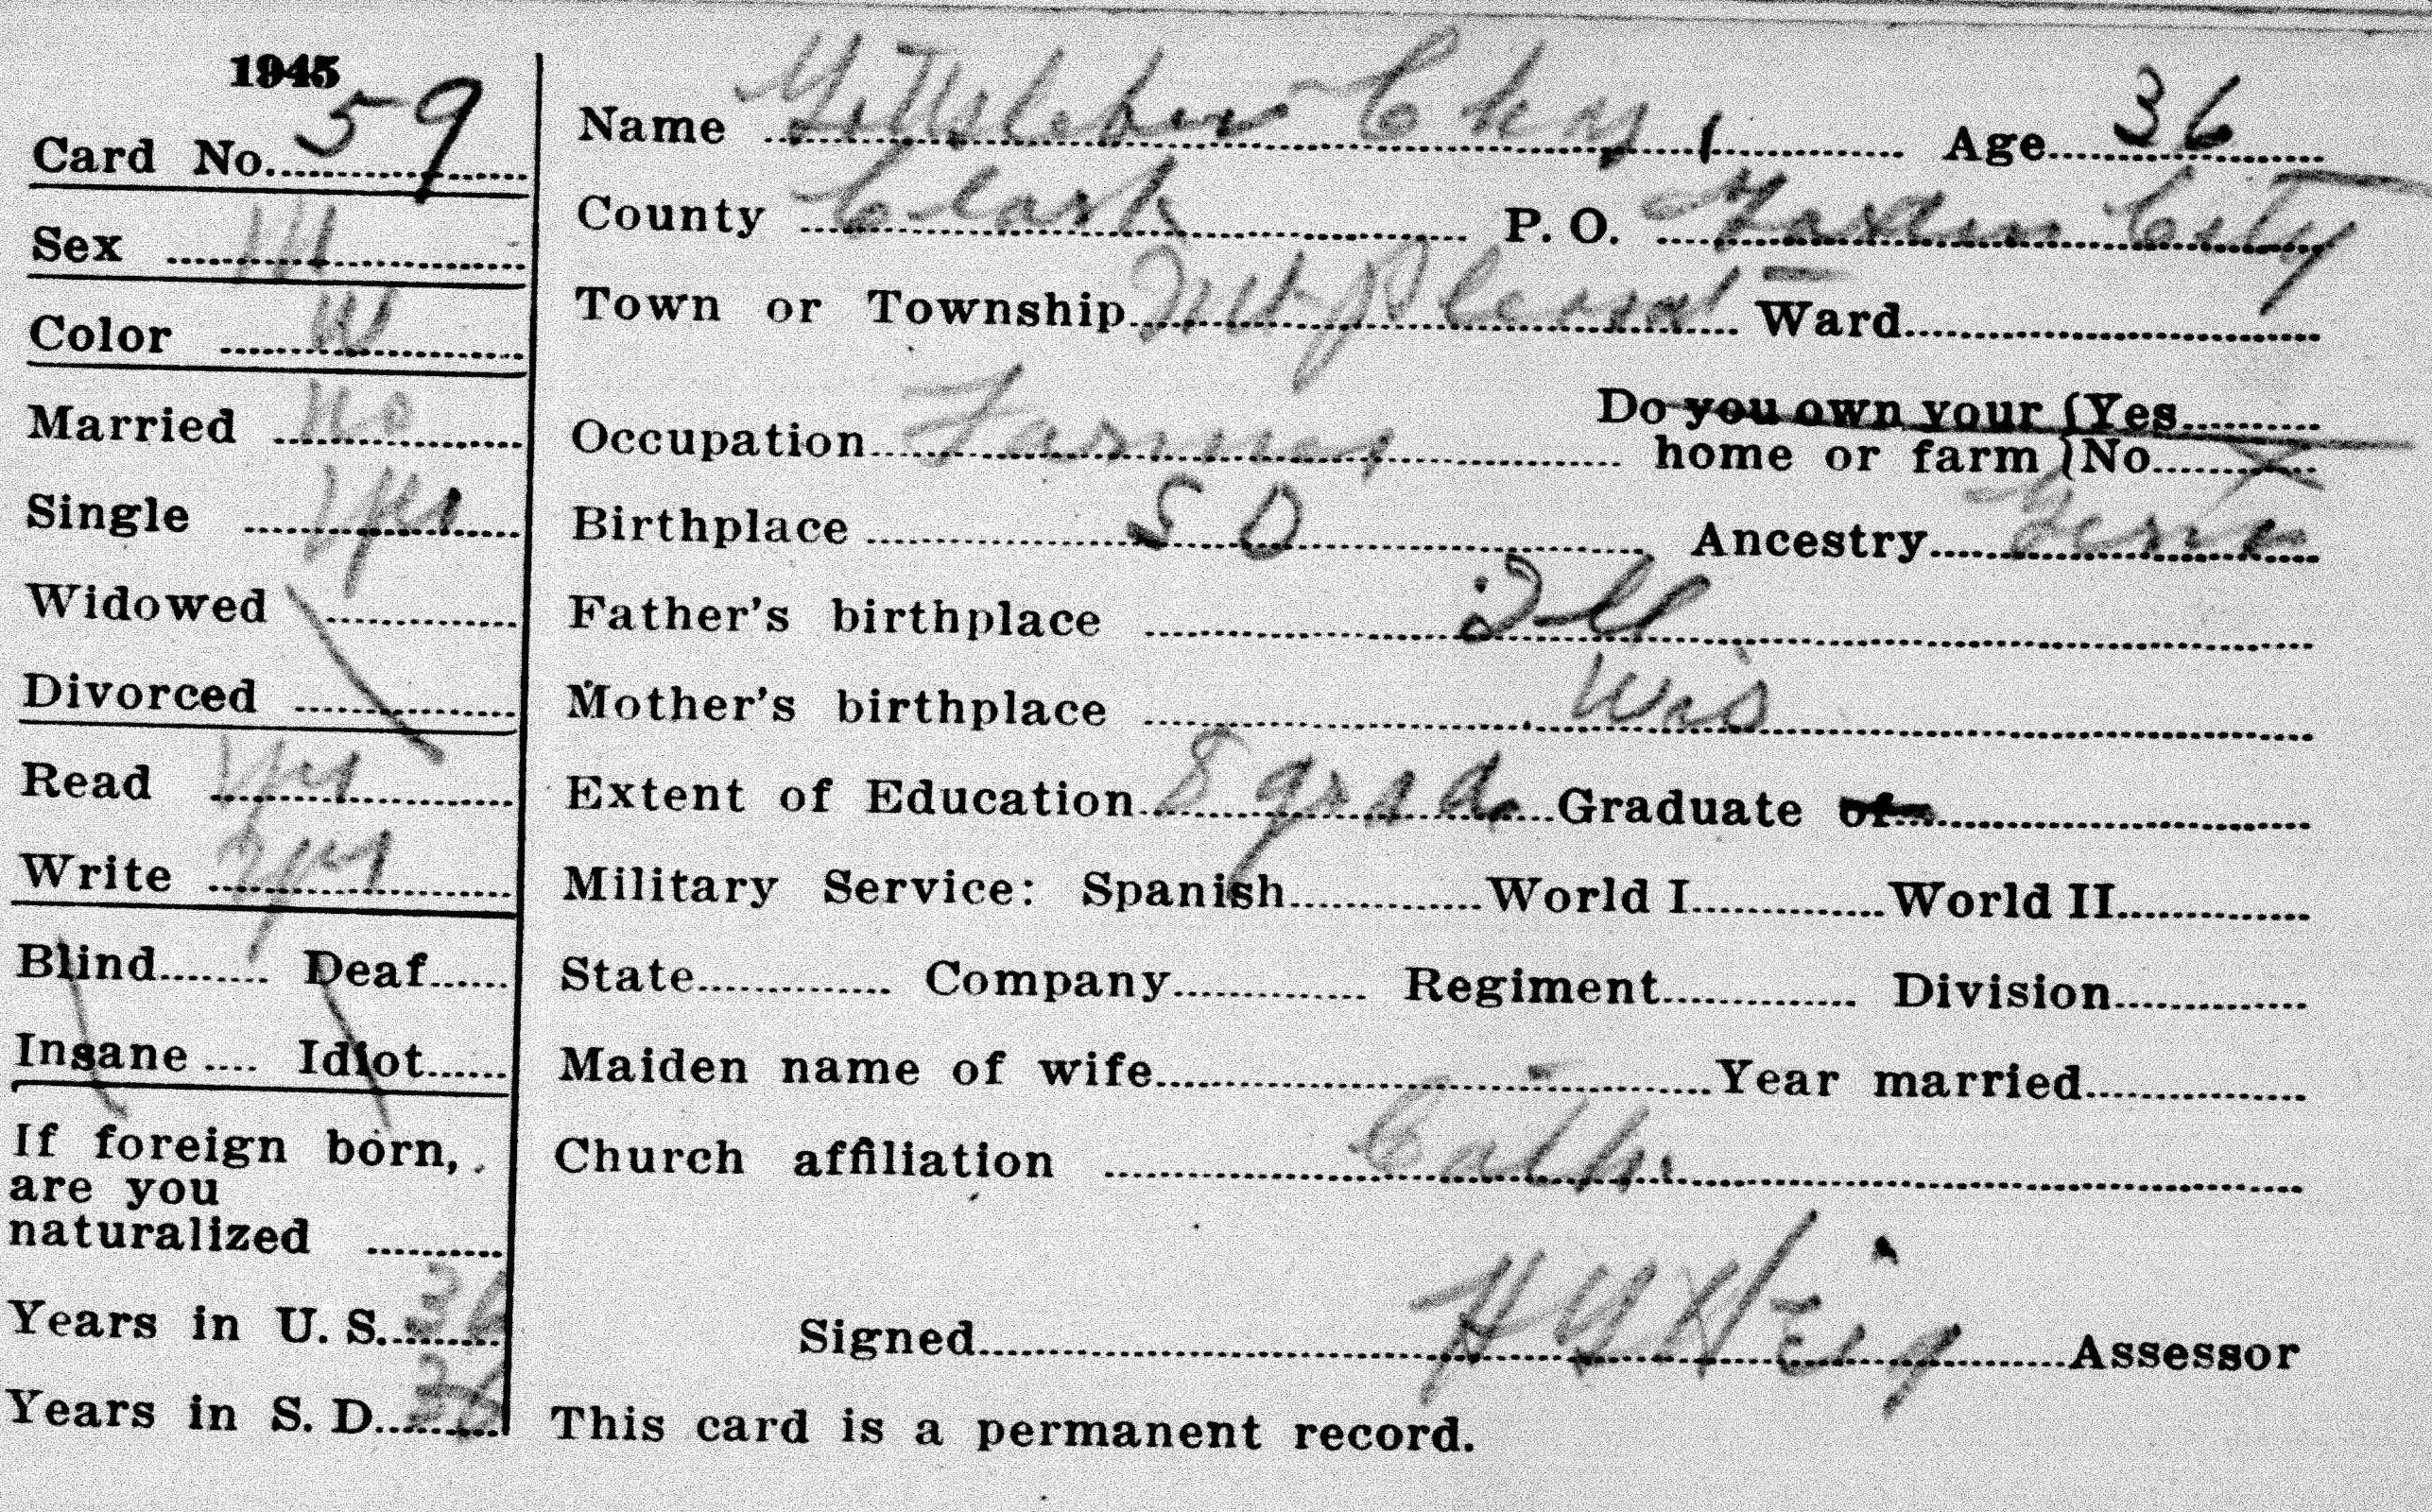 1945
Card No. 59
Sex M
Color W
Married no
Single yes
Widowed
Divorced
Read yes
Write yes
Blind Deaf
Insane Idiot
If foreign born,
are you
naturalized
Years in U. S. 36
Years in S. D. 36
Name Chas, Age 36
County Clark P. O. Garden City
Town or Township Mt Pleasant Ward
Occupation Farmer Do you own your Yes
home or farm No X
Birthplace S D Ancestry Germ
Father's birthplace Ill
Mother's birthplace Wis
Extent of Education 8 grad. Graduate of
Military Service: Spanish World I World II
State Company Regiment Division
Maiden name of wife Year married
Church affiliation Cath.
Signed Assessor
This card is a permanent record.